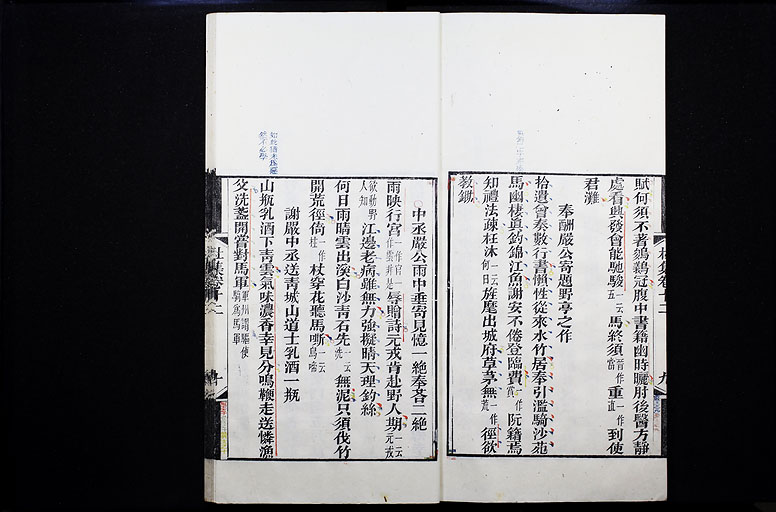 賦何須不著鵕鸃冠腹中書籍幽時曬肘後醫方靜
處看興發會能馳駿一云五馬終須晉作當重一作直到使
君灘
奉酬嚴公寄題野亭之作
拾遺曾奏數行書懶性從來水竹居奉引濫騎沙苑
馬幽棲真釣錦江魚謝安不倦登臨費晉作賞阮籍焉
知禮法疎枉沐一云何日旌麾出城府草茅無一作荒徑欲
教鋤
中丞嚴公雨中垂寄見憶一絕奉荅二絕
雨映行宮一作官一作雲非是辱贈詩元戎肯赴野人期一云元戎
欲動野人知江邊老病雖無力強擬晴天理釣絲
何日雨晴雲出溪白沙青石先一云洗無泥只須伐竹
開荒徑倚一作拄杖穿花聽馬嘶一云鳥啼
謝嚴中丞送青城山道士乳酒一瓶
山瓶乳酒下青雲氣味濃香幸見分鳴鞭走送憐漁
父洗盞開嘗對馬軍軍州謂驅使騎為馬軍
杜集卷十二
九
杜集卷十二